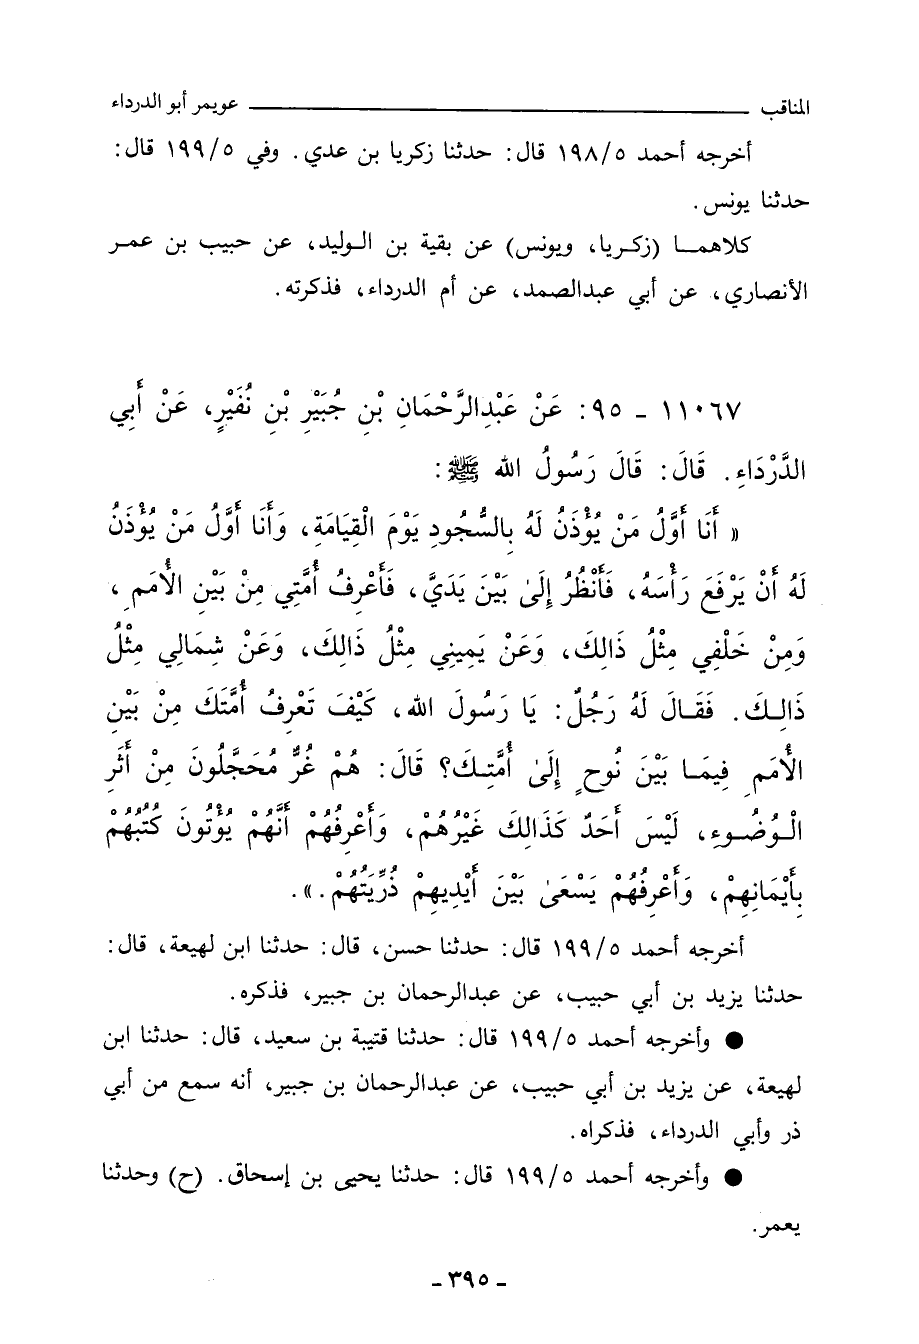 المناقب ــــــــــ عويمر أبو الدرداء
أخرجه أحمد ١٩٨/٥ قال: حدثنا زكريا بن عدي. وفي ١٩٩/٥ قال:
حدثنا يونس.
كلاهما (زكريا، ويونس) عن بقية بن الوليد، عن حبيب بن عمر
الأنصاري، عن أبي عبدالصمد، عن أم الدرداء، فذكرته.
١١٠٦٧ - ٩٥: عَنْ عَبْدِالرَّحْمَانِ بْنِ جُبَيْرِ بْنِ نُفَيْرٍ، عَنْ أَبِي
الدَّرْدَاءِ. قَالَ: قَالَ رَسُولُ الله ﷺ:
« أَنَا أَوَّلُ مَنْ يُؤْذَنُ لَهُ بِالسُّجُودِ يَوْمَ الْقِيَامَةِ، وَأَنَا أَوَّلُ مَنْ يُؤْذَنُ
لَهُ أَنْ يَرْفَعَ رَأْسَهُ، فَأَنْظُرُ إِلَىٰ بَيْنَ يَدَيَّ، فَأَعْرِفُ أُمَّتِي مِنْ بَيْنِ الأُمَمِ،
وَمِنْ خَلْفِي مِثْلُ ذَالِكَ، وَعَنْ يَمِينِي مِثْلُ ذَالِكَ، وَعَنْ شِمَالِي مِثْلُ
ذَالِكَ. فَقَالَ لَهُ رَجُلٌ: يَا رَسُولَ الله، كَيْفَ تَعْرِفُ أُمَّتَكَ مِنْ بَيْنِ
الأُمَمِ فِيمَا بَيْنَ نُوحٍ إِلَىٰ أُمَّتِكَ؟ قَالَ: هُمْ غُرٌّ مُحَجَّلُونَ مِنْ أَثَرِ
الْوُضُوءِ، لَيْسَ أَحَدٌ كَذَالِكَ غَيْرُهُمْ، وَأَعْرِفُهُمْ أَنَّهُمْ يُؤْتَونَ كُتُبُهُمْ
بِأَيْمَانِهِمْ، وَأَعْرِفُهُمْ يَسْعَىٰ بَيْنَ أَيْدِيهِمْ ذُرِّيَّتُهُمْ.».
أخرجه أحمد ١٩٩/٥ قال: حدثنا حسن، قال: حدثنا ابن لهيعة، قال:
حدثنا يزيد بن أبي حبيب، عن عبدالرحمان بن جبير، فذكره.
● وأخرجه أحمد ١٩٩/٥ قال: حدثنا قتيبة بن سعيد، قال: حدثنا ابن
لهيعة، عن يزيد بن أبي حبيب، عن عبدالرحمان بن جبير، أنه سمع من أبي
ذر وأبي الدرداء، فذكراه.
● وأخرجه أحمد ١٩٩/٥ قال: حدثنا يحيى بن إسحاق. (ح) وحدثنا
يعمر.
- ٣٩٥ -